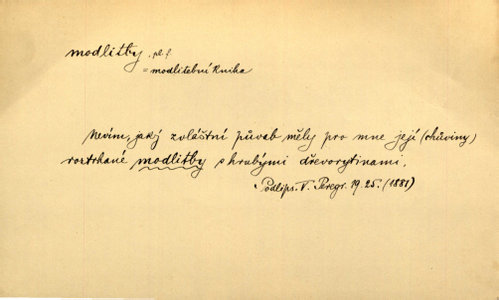 modlitby, pl. f.
= modlitební kniha
Nevím, jaký zvláštní půvab měly pro mne její (chůviny)
roztrhané modlitby s hrubými dřevorytinami.
Podlips. V. Peregr. 19. 25. (1881)